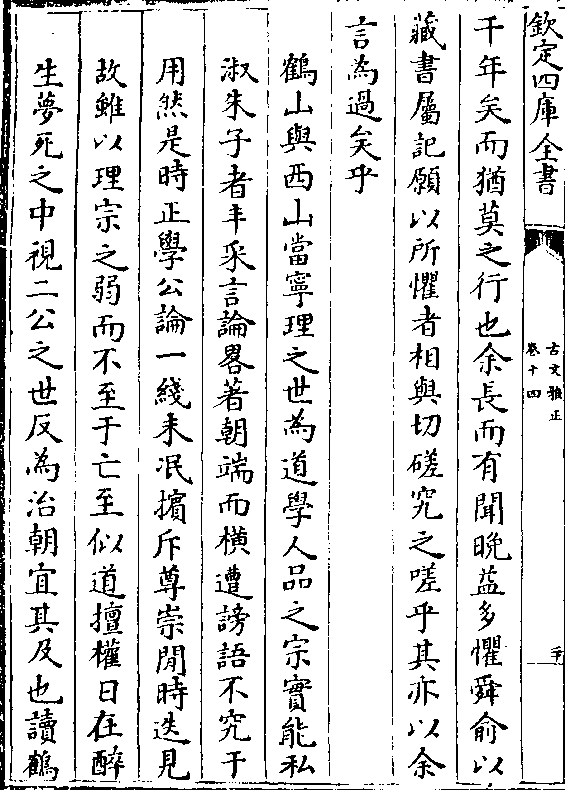 欽定四庫全書
古文雅正
卷十四
千年矣而猶莫之行也余長而有聞晚益多懼舜俞以
藏書屬記願以所懼者相與切磋究之嗟乎其亦以余
言為過矣乎
鶴山與西山當寧理之世為道學人品之宗實能私
淑朱子者丰采言論畧著朝端而橫遭謗語不究于
用然是時正學公論一綫未泯擯斥尊崇閒時迭見
故雖以理宗之弱而不至于亡至似道擅權日在醉
生夢死之中視二公之世反為治朝宜其及也讀鶴